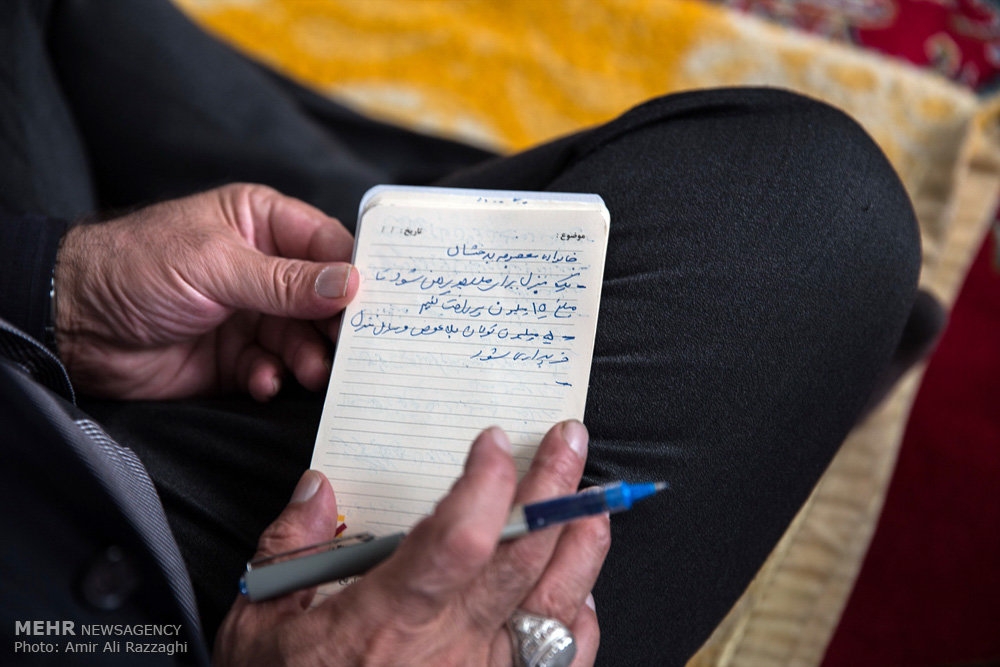 موضوع: تاریخ: / /
خانواده معصومه بدخشان
- یک منزل برای رهن شود تا
مبلغ ۱۵ میلیون پرداخت کنیم
- ۵ میلیون تومان بلاعوض وسائل منزل
خریداری شود
-
MEHR NEWSAGENCY
Photo: Amir Ali Razzaghi